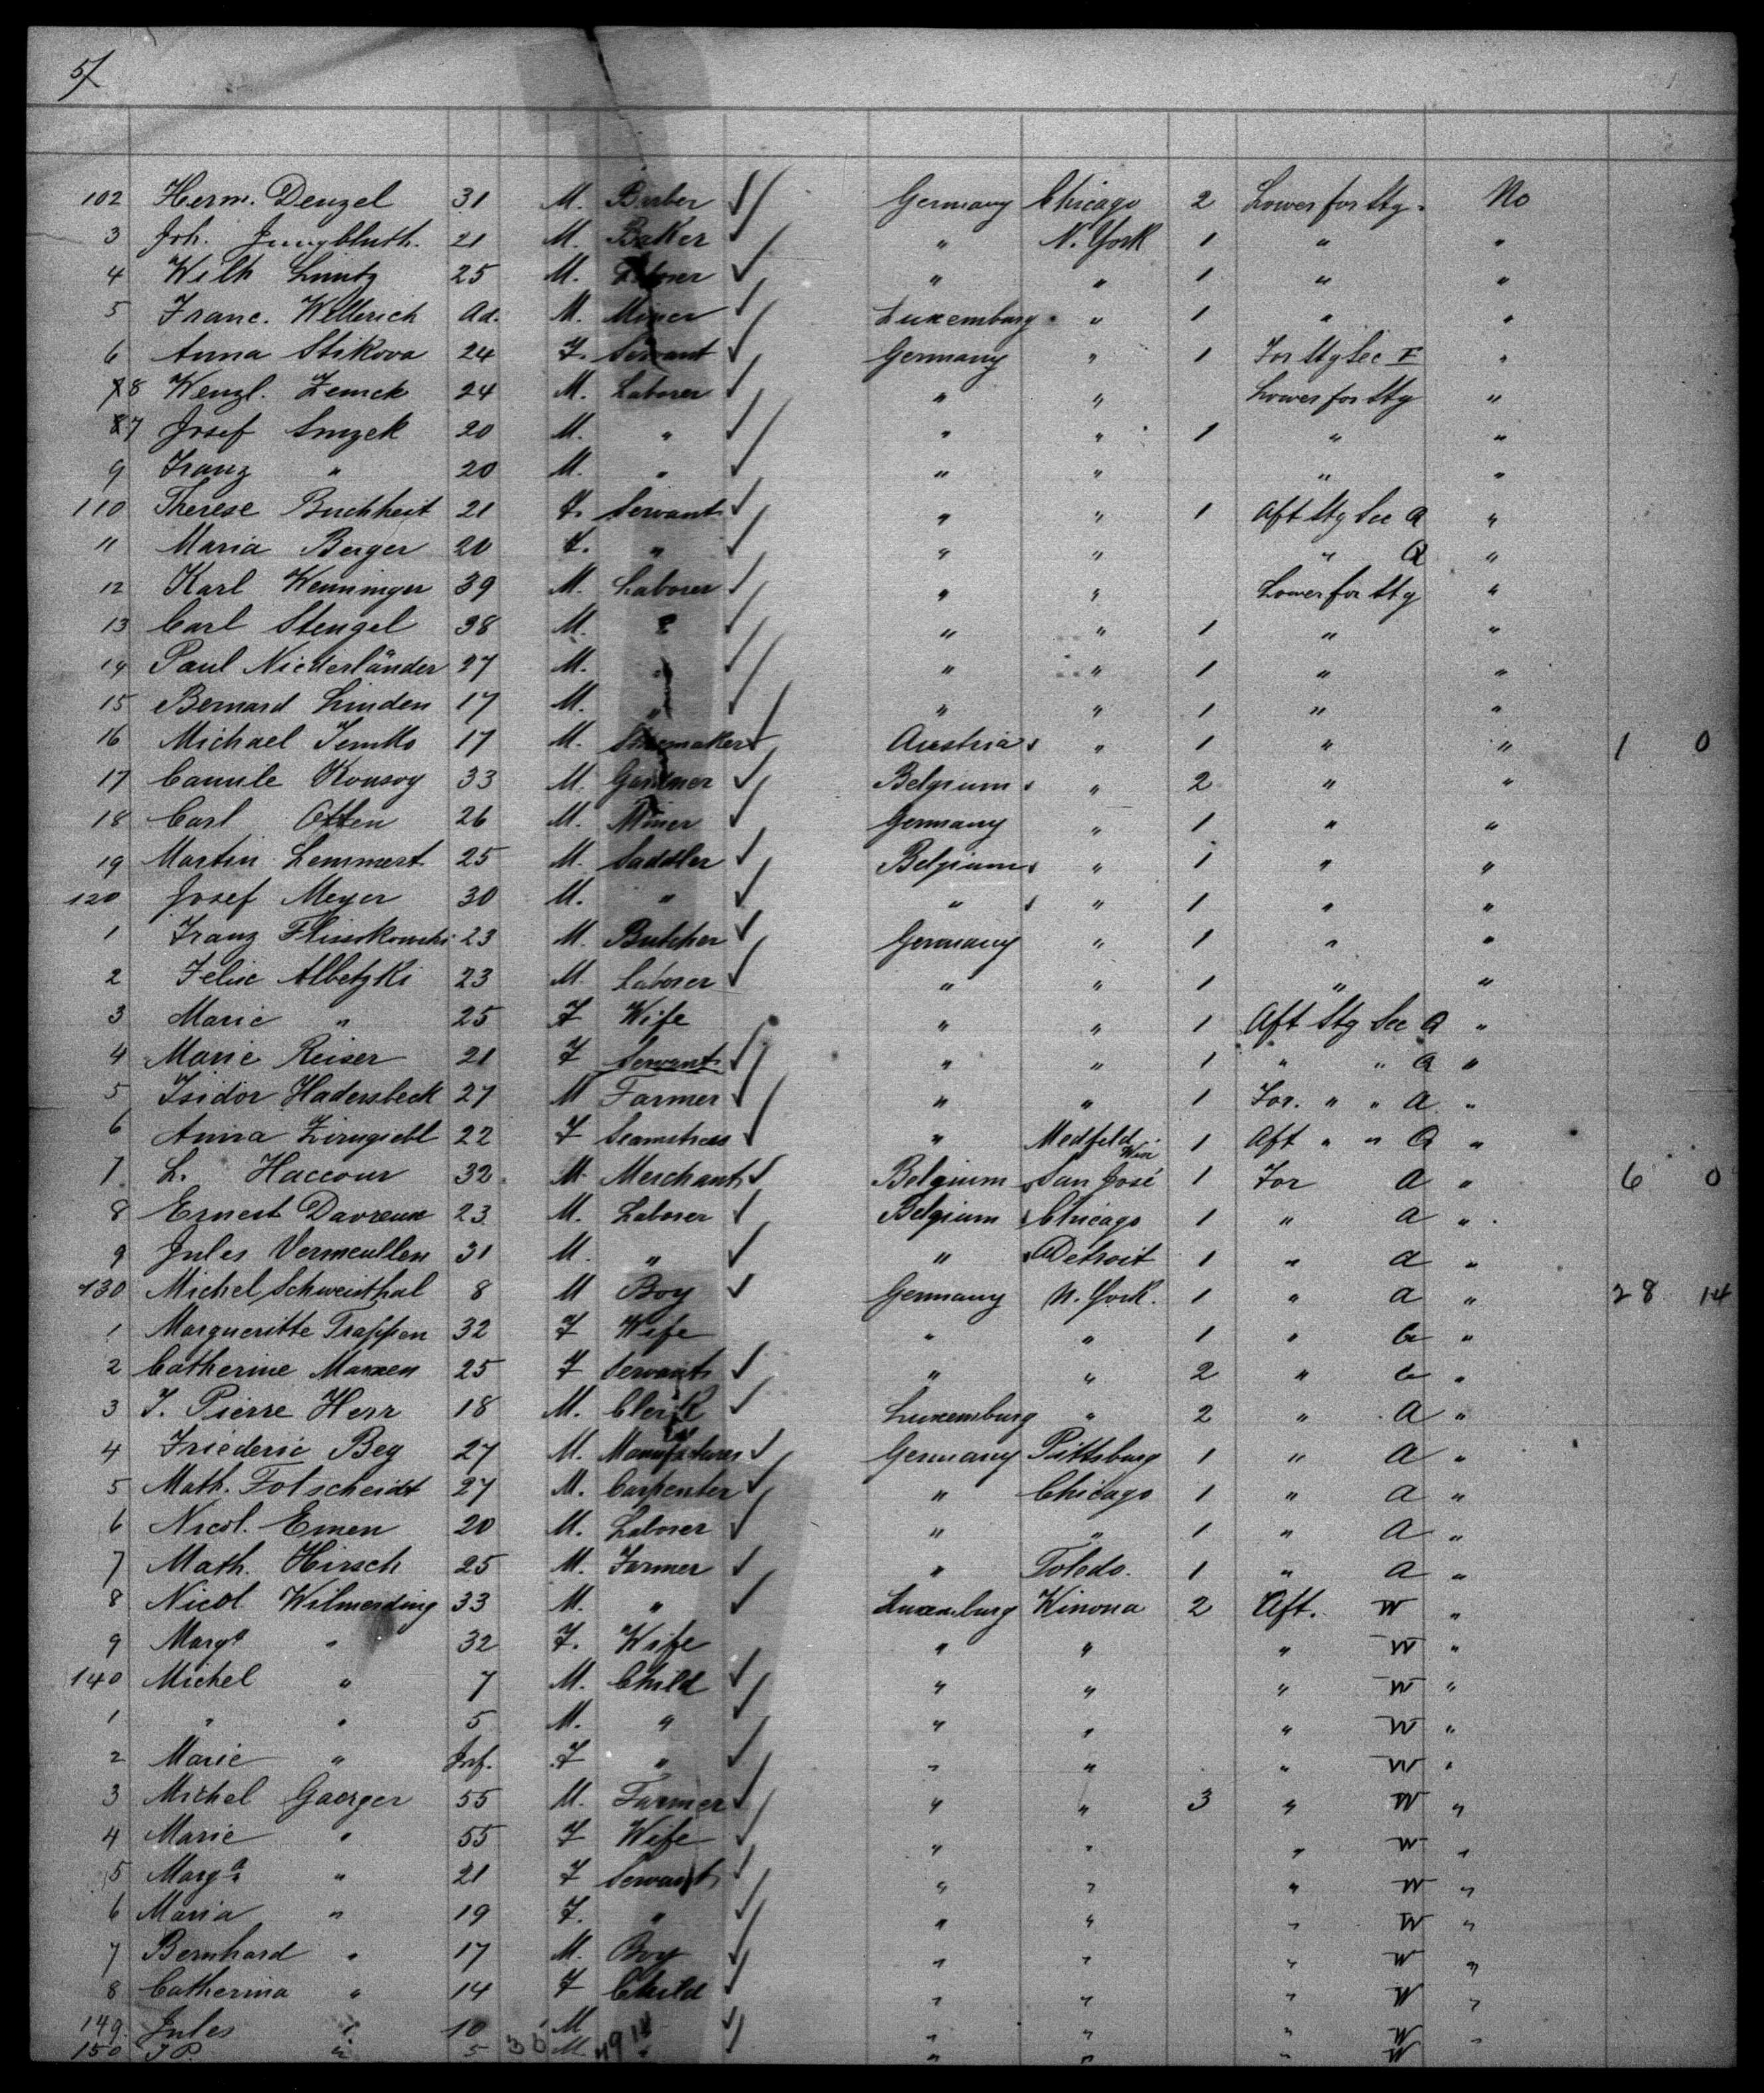 57
102 Herm. Denzel 31 M. Barber Germany Chicago 2 Lower for Stg. No
3 Joh. Jungbluth. 21 M. Baker " N. York 1 " "
4 Wilh Limtz 25 M. " " 1 " "
5 Franc. Wellerich Ad. M. Miner Luxemburg " 1 " "
6 Anna Stikova 24 F. Servant Germany " 1 For Stg Sec F "
8 Wenzl. Zemek 24 M. Laborer " " Lower for Stg "
7 Josef Smzek 20 M. " " " 1 " "
9 Franz " 20 M. " " " " "
110 Therese Buchheit 21 F. Servant " " 1 Aft Stg Sec A "
11 Maria Berger 20 F. " " " " A "
12 Karl Wenninger 39 M. Laborer " " Lower for Stg "
13 Carl Stengel 38 M. " " " 1 " "
14 Paul Niederländer 27 M. " " " 1 " "
15 Bernard Linden 17 M. " " " 1 " "
16 Michael Temko 17 M. Shoemaker Austria " 1 " " 1 0
17 Camile Rousoy 33 M. Gardner Belgium " 2 " "
18 Carl Otten 26 M. Miner Germany " 1 " "
19 Martin Lemmert 25 M. Saddler Belgium " 1 " "
120 Josef Meyer 30 M. " " " 1 " "
1 Franz Flisikowski 23 M. Butcher Germany " 1 " "
2 Felix Albetzki 23 M. Laborer " " 1 " "
3 Marie " 25 F Wife " " 1 Aft Stg Sec A "
4 Marie Reiser 21 F Servant " " 1 " " A "
5 Isidor Hadersbeck 27 M Farmer " " 1 For. " " A "
6 Anna Zirngiebl 22 F Seamstress " Medfeld Wisc 1 Aft " " A "
7 L. Haccour 32 M. Merchant Belgium San José 1 For A " 6 0
8 Ernest Davreux 23 M. Laborer Belgium Chicago 1 " A "
9 Jules Vermeullen 31 M. " " Detroit 1 " A "
130 Michel Schweisthal 8 M Boy Germany N. York. 1 " A " 28 14
1 Margueritte Trappen 32 F Wife " " 1 " "
2 Catherine Marxen 25 F Servant " " 2 " "
3 J. Pierre Herr 18 M. Clerk Luxemburg " 2 " A "
4 Friederic Beg 27 M. Manufacturer Germany Pittsburg 1 " A "
5 Math. Fotscheidt 27 M. Carpenter " Chicago 1 " A "
6 Nicol. Emen 20 M. Laborer " " 1 " A "
7 Math. Hirsch 25 M. Farmer " Toledo. 1 " A "
8 Nicol Wilmerding 33 M. " Luxemburg Winona 2 Aft. W "
9 Marga " 32 F. Wife " " " W "
140 Michel " 7 M. Child " " " W "
1 " " 5 M. " " " " W "
2 Marie " Inf. F " " " " W "
3 Michel Gaerger 55 M. Farmer " " 3 " W "
4 Marie " 55 F Wife " " " W "
5 Marga " 21 F Servant " " " W "
6 Maria " 19 F. " " " " W "
7 Bernhard " 17 M. Boy " " " W "
8 Catherina " 14 F Child " " " W "
149. Jules " 10 M " " " W "
150 J P. " 5 M " " " " W